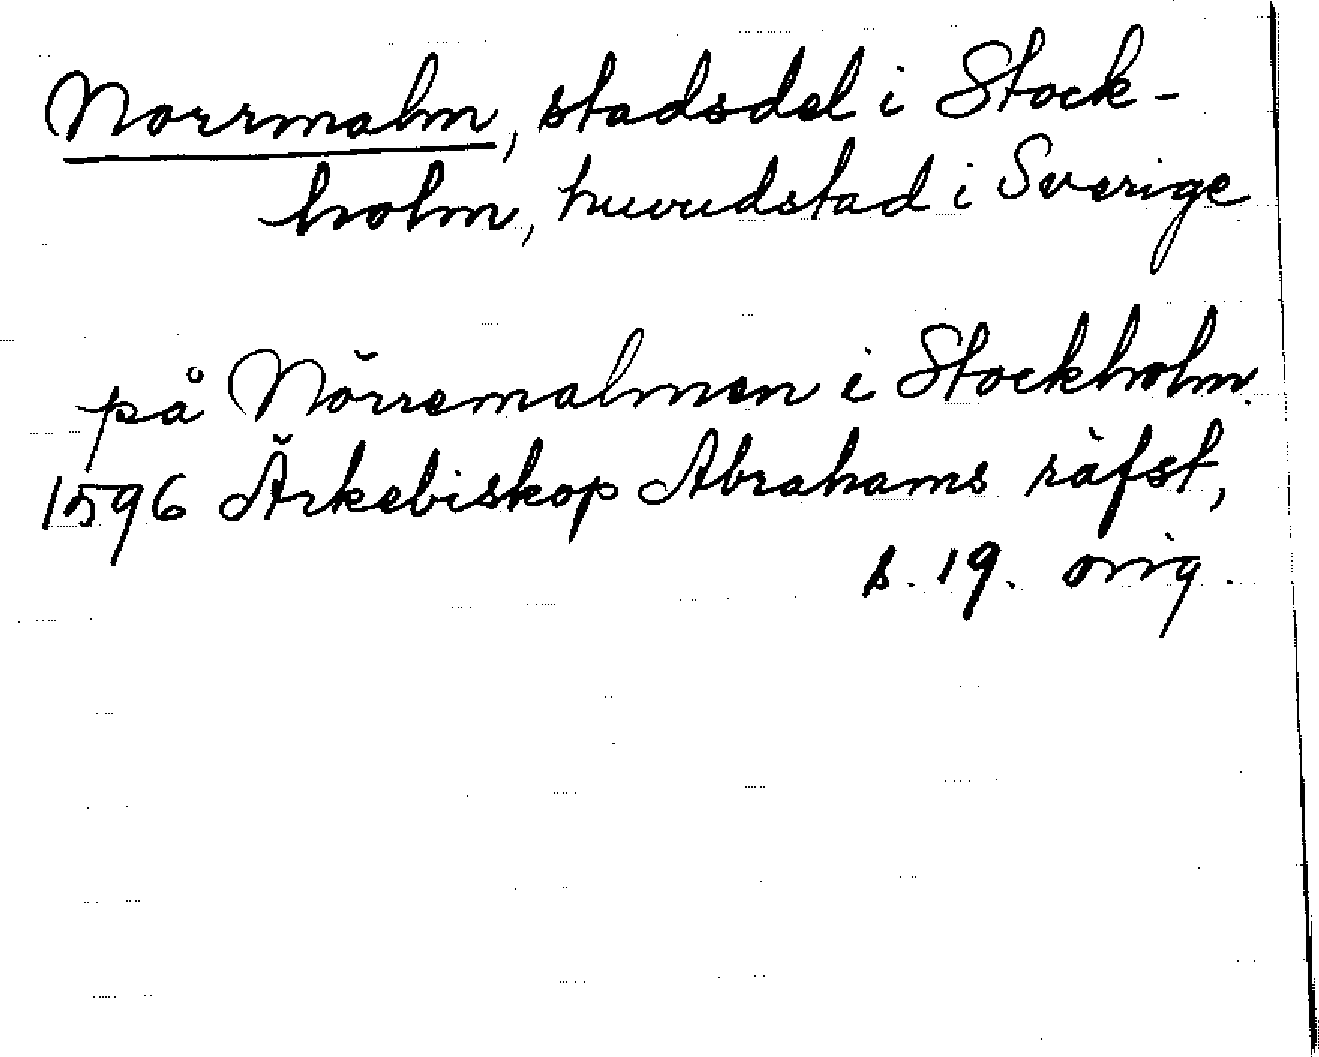 Norrmalm, stadsdel i Stock-
holm, huvudstad i Sverige
på Nörremalmen i Stockholm.
1596 Ärkebiskop Abrahams räfst,
s. 19. orig.